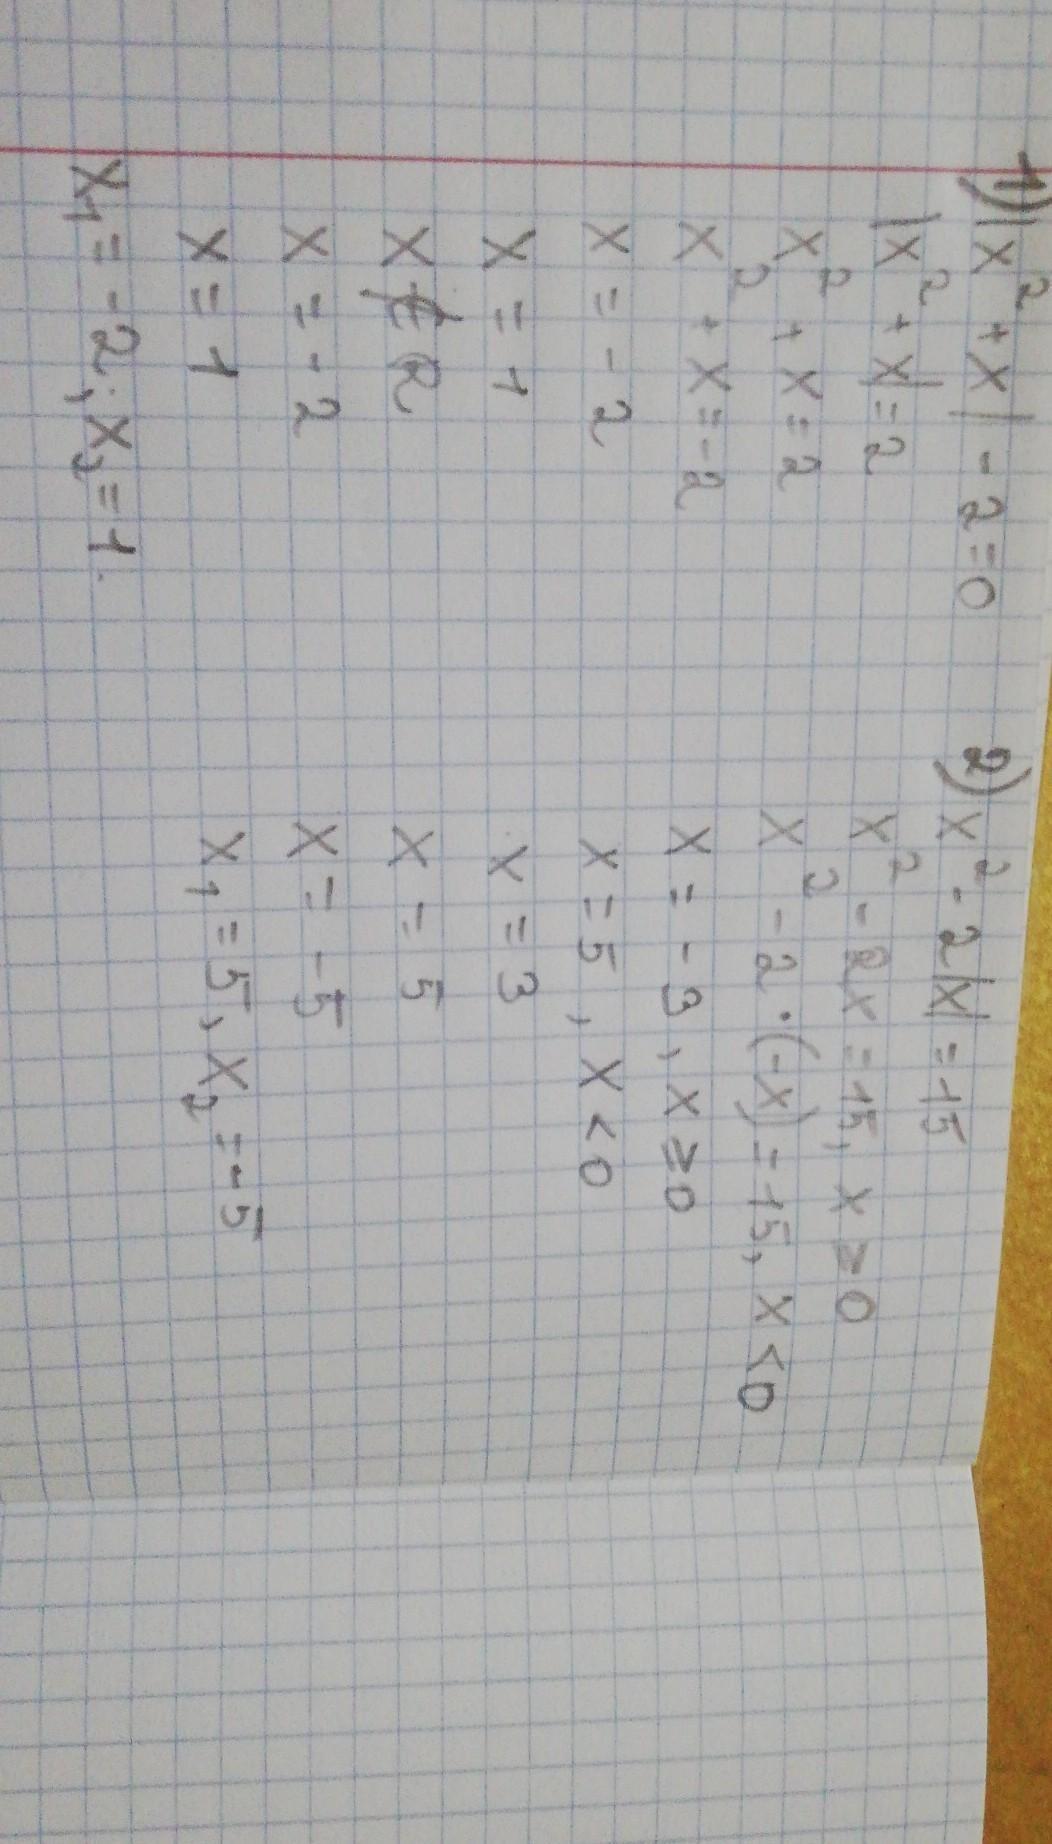 1) |x² + x| - 2 = 0
|x² + x| = 2
x² + x = 2
x² + x = -2
x = -2
x = 1
x ∉ R
x = -2
x = 1
x₁ = -2; x₂ = 1.
2) x² - 2|x| = 15
x² - 2x = 15, x ≥ 0
x² - 2·(-x) = 15, x < 0
x = -3, x ≥ 0
x = 5, x < 0
x = 3
x = 5
x = -5
x₁ = 5, x₂ = -5